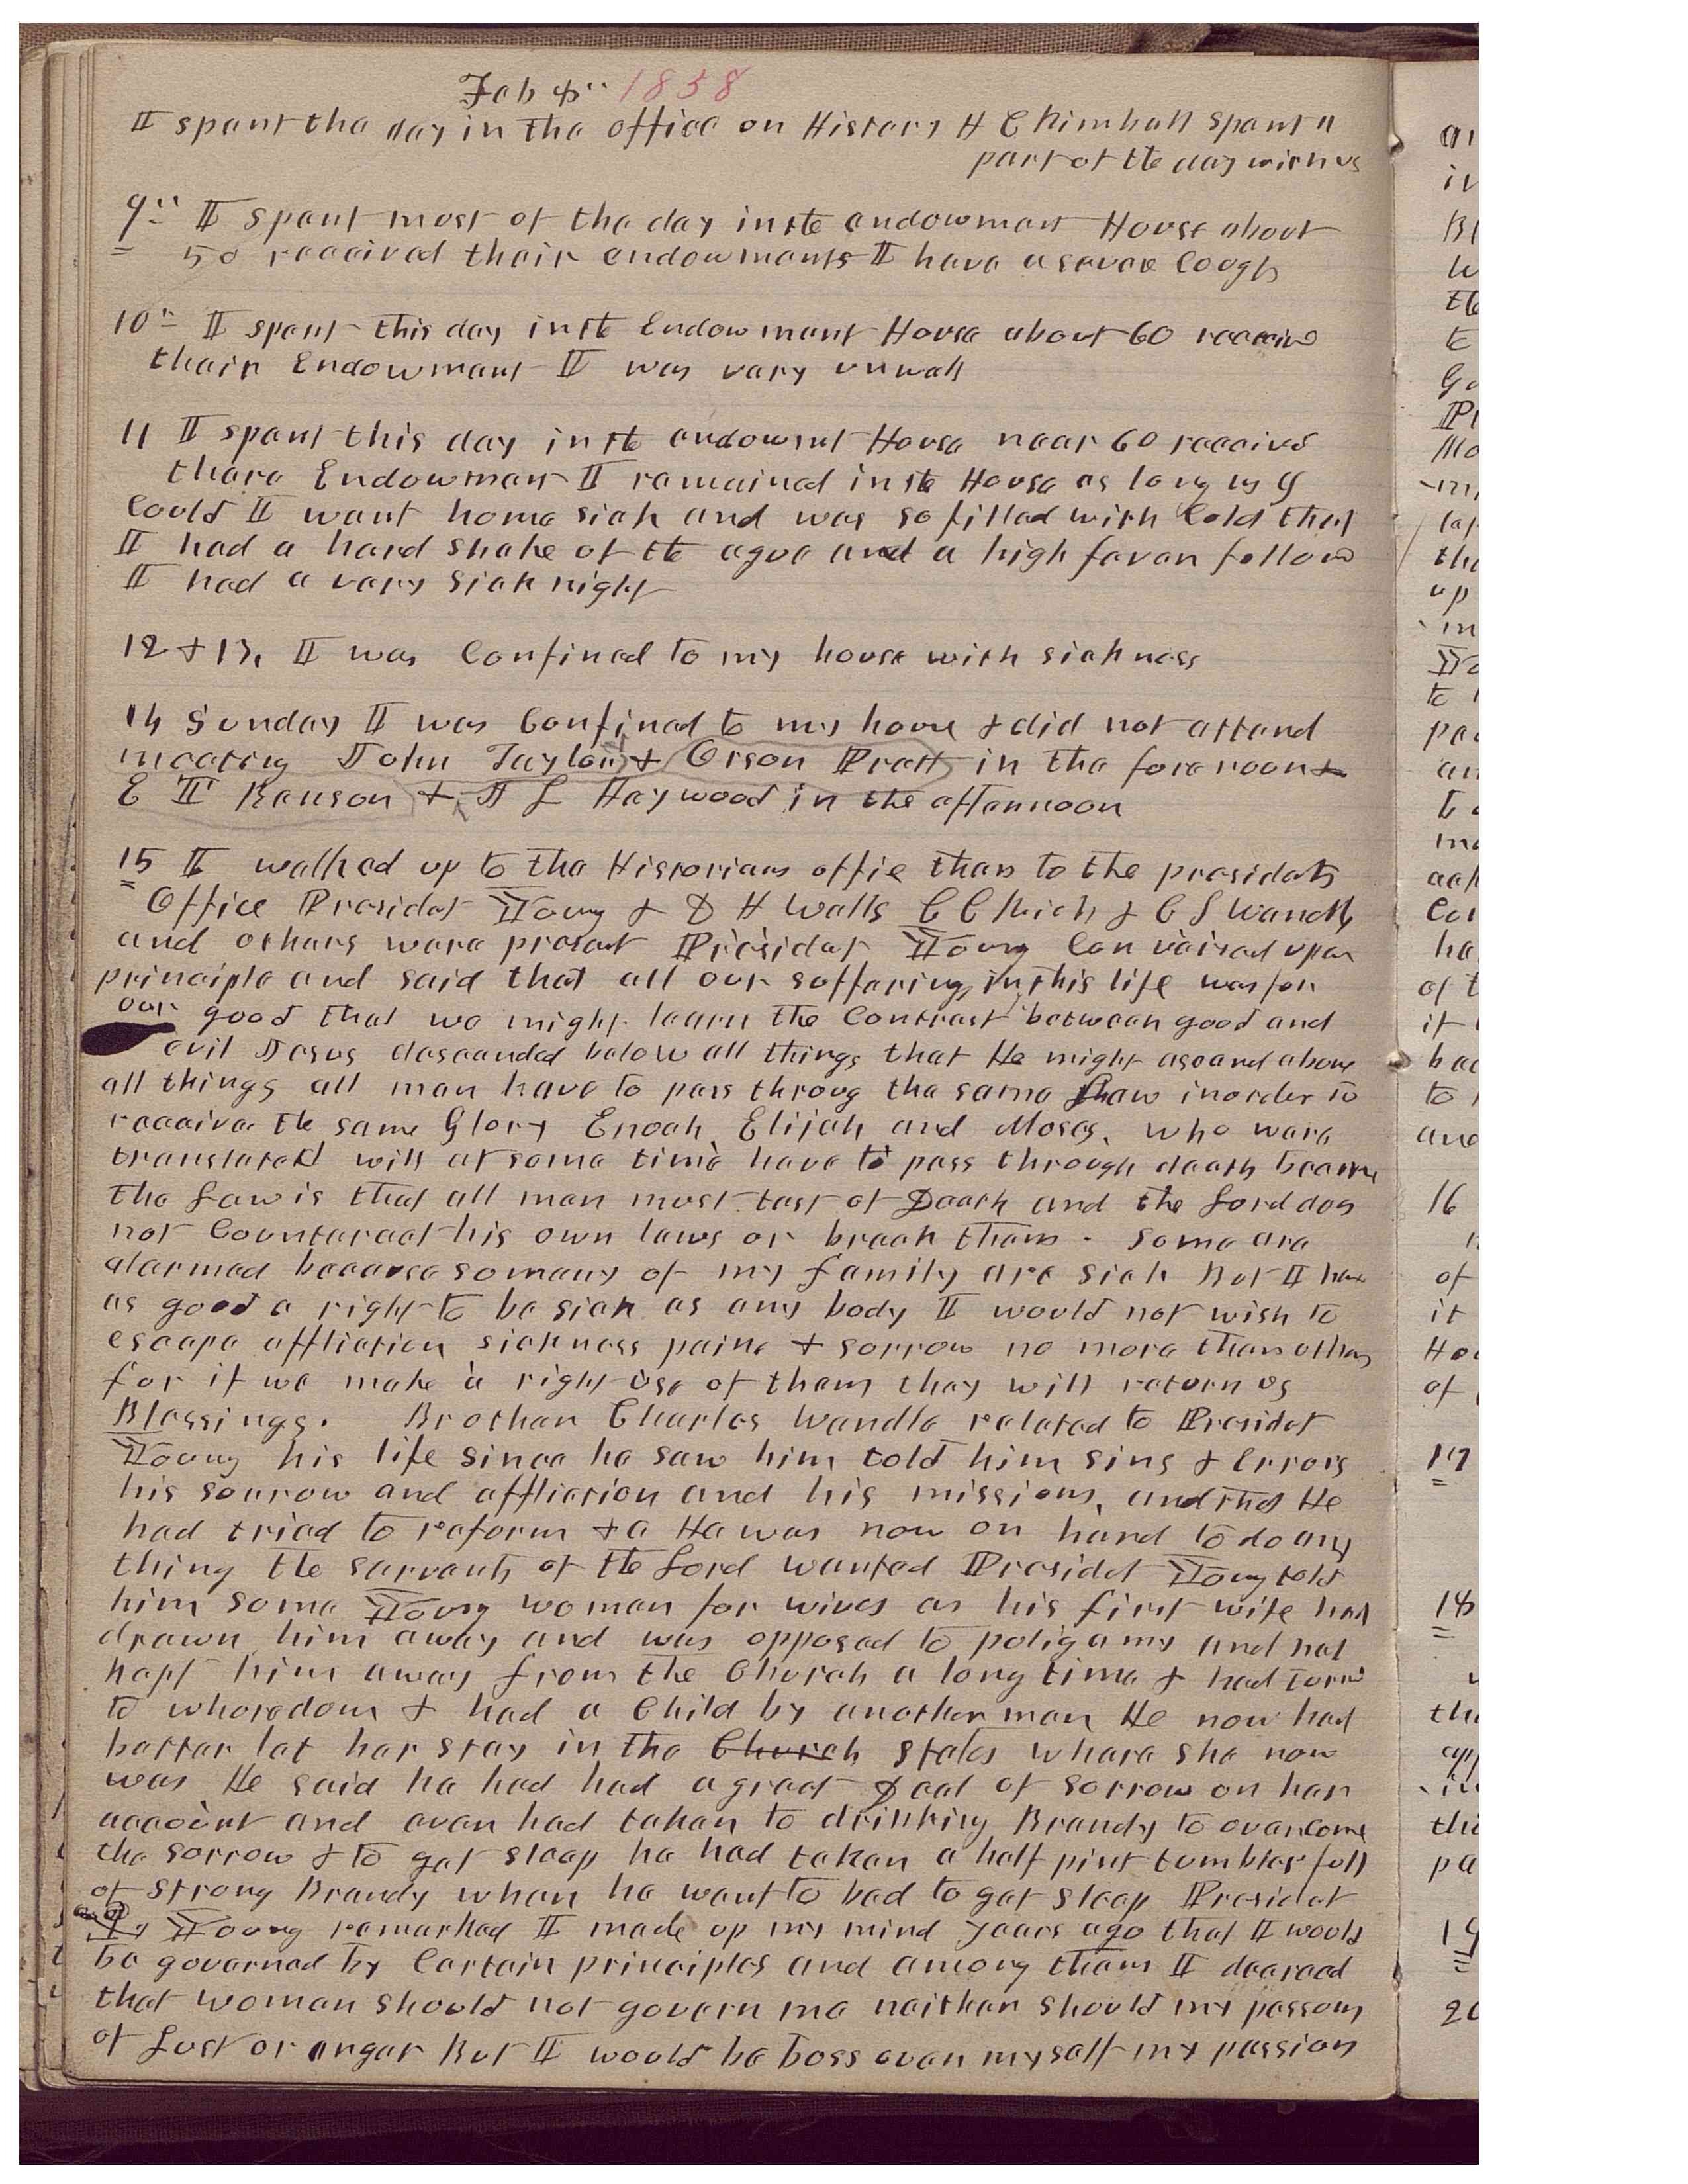 Feb 8th 1858
I spent the day in the office on History H C Kimball spent a
part of the day with us
9th I spent most of the day in the endowment House about
50 received their endowments I have a severe Cough
10th I spent this day in the Endowment House about 60 received
their Endowment I was very unwell
11 I spent this day in the endowmt House near 60 received
there Endowment I remained in the House as long as I
Could I went home sick and was so filled with Cold that
I had a hard shake of the ague and a high fever follow
I had a very sick night
12 & 13, I was Confined to my house with sickness
14 Sunday I was Confined to my house & did not attend
meeting John Taylor & Orson Pratt in the forenoon &
E T Benson & J L Haywood in the afternoon
15 I walked up to the Historians offie then to the presidets
Office Presidet Young & D H Wells C C Rich & C S Wandle
and others were preseet Presidet Young Convairsed upon
principle and said that all our suffering in this life was for
our good that we might learn the Contrast between good and
evil Jesus descended below all things that He might ascend above
all things all men have to pass throug the same Law in order to
receive the same Glory Enoch Elijah and Moses, who were
translated will at some time have to pass through death because
the Law is that all men must tast of Death and the Lord dos
not Counteract his own laws or break them. Some are
alarmed because so many of my family are sick But I have
as good a right to be sick as any body I would not wish to
escape affliction sickness paine & sorrow no more than others
for if we make a right use of them they will return us
Blessings. Brother Charles Wandle related to Presidet
Young his life since he saw him told him sins & Errors
his sorrow and affliction and his missions, and that He
had tried to reform &c He was now on hand to do any
thing the servants of the Lord wanted Presidet Young told
him some Young women for wives as his first wife had
drawn him away and was opposed to poligamy and had
kept him away from the Church a long time & had turned
to whoredom & had a Child by another man He now had
better let her stay in the Church states where she now
was He said he had had a great Deal of sorrow on her
account and even had taken to drinking Brandy to overcome
the sorrow & to get sleep he had taken a half pint tumbler full
of strong Brandy when he went to bed to get sleep Presidet
Young remarked I made up my mind years ago that I would
be governed by Certain principles and among them I decreed
that women should not govern me neither should my passons
of Lust or anger But I would be boss over myself my passion